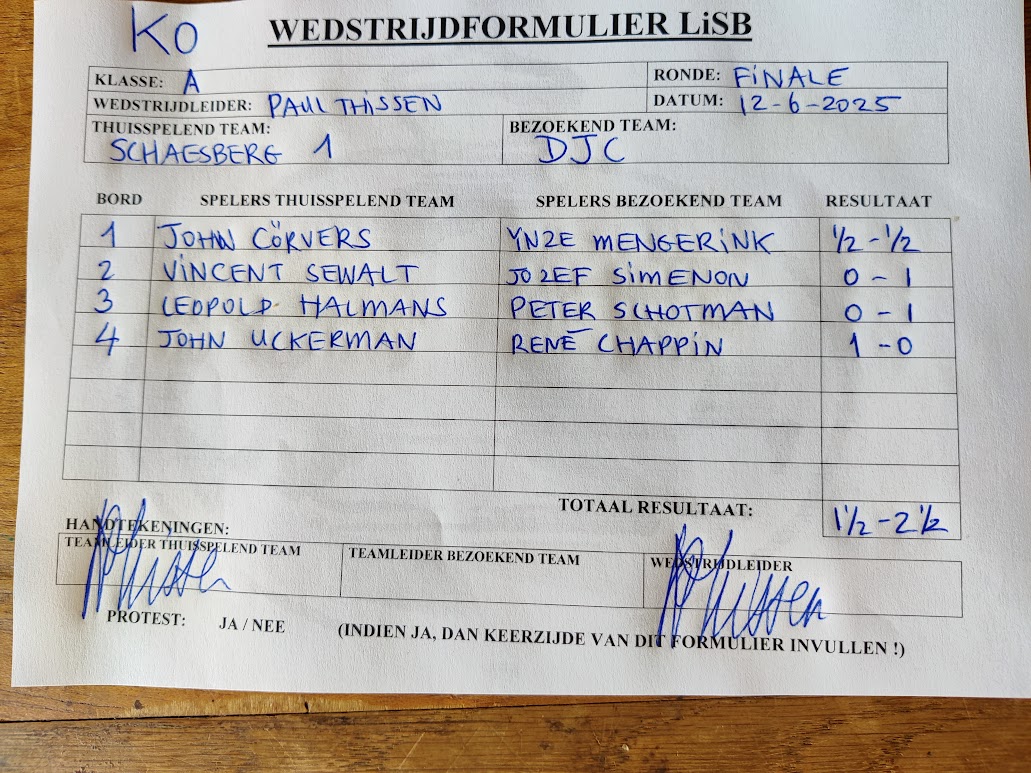 KO
WEDSTRIJDFORMULIER LiSB
KLASSE: A RONDE: FINALE
WEDSTRIJDLEIDER: PAUL THISSEN DATUM: 12-6-2025
THUISSPELEND TEAM: BEZOEKEND TEAM:
SCHAESBERG 1 DJC
BORD SPELERS THUISSPELEND TEAM SPELERS BEZOEKEND TEAM RESULTAAT
1 JOHN CÖRVERS YNZE MENGERINK ½ - ½
2 VINCENT SEWALT JOZEF SIMENON 0 - 1
3 LEOPOLD HALMANS PETER SCHOTMAN 0 - 1
4 JOHN UCKERMAN RENÉ CHAPPIN 1 - 0
TOTAAL RESULTAAT: 1½ - 2½
HANDTEKENINGEN:
TEAMLEIDER THUISSPELEND TEAM TEAMLEIDER BEZOEKEND TEAM WEDSTRIJDLEIDER
PROTEST: JA / NEE (INDIEN JA, DAN KEERZIJDE VAN DIT FORMULIER INVULLEN !)